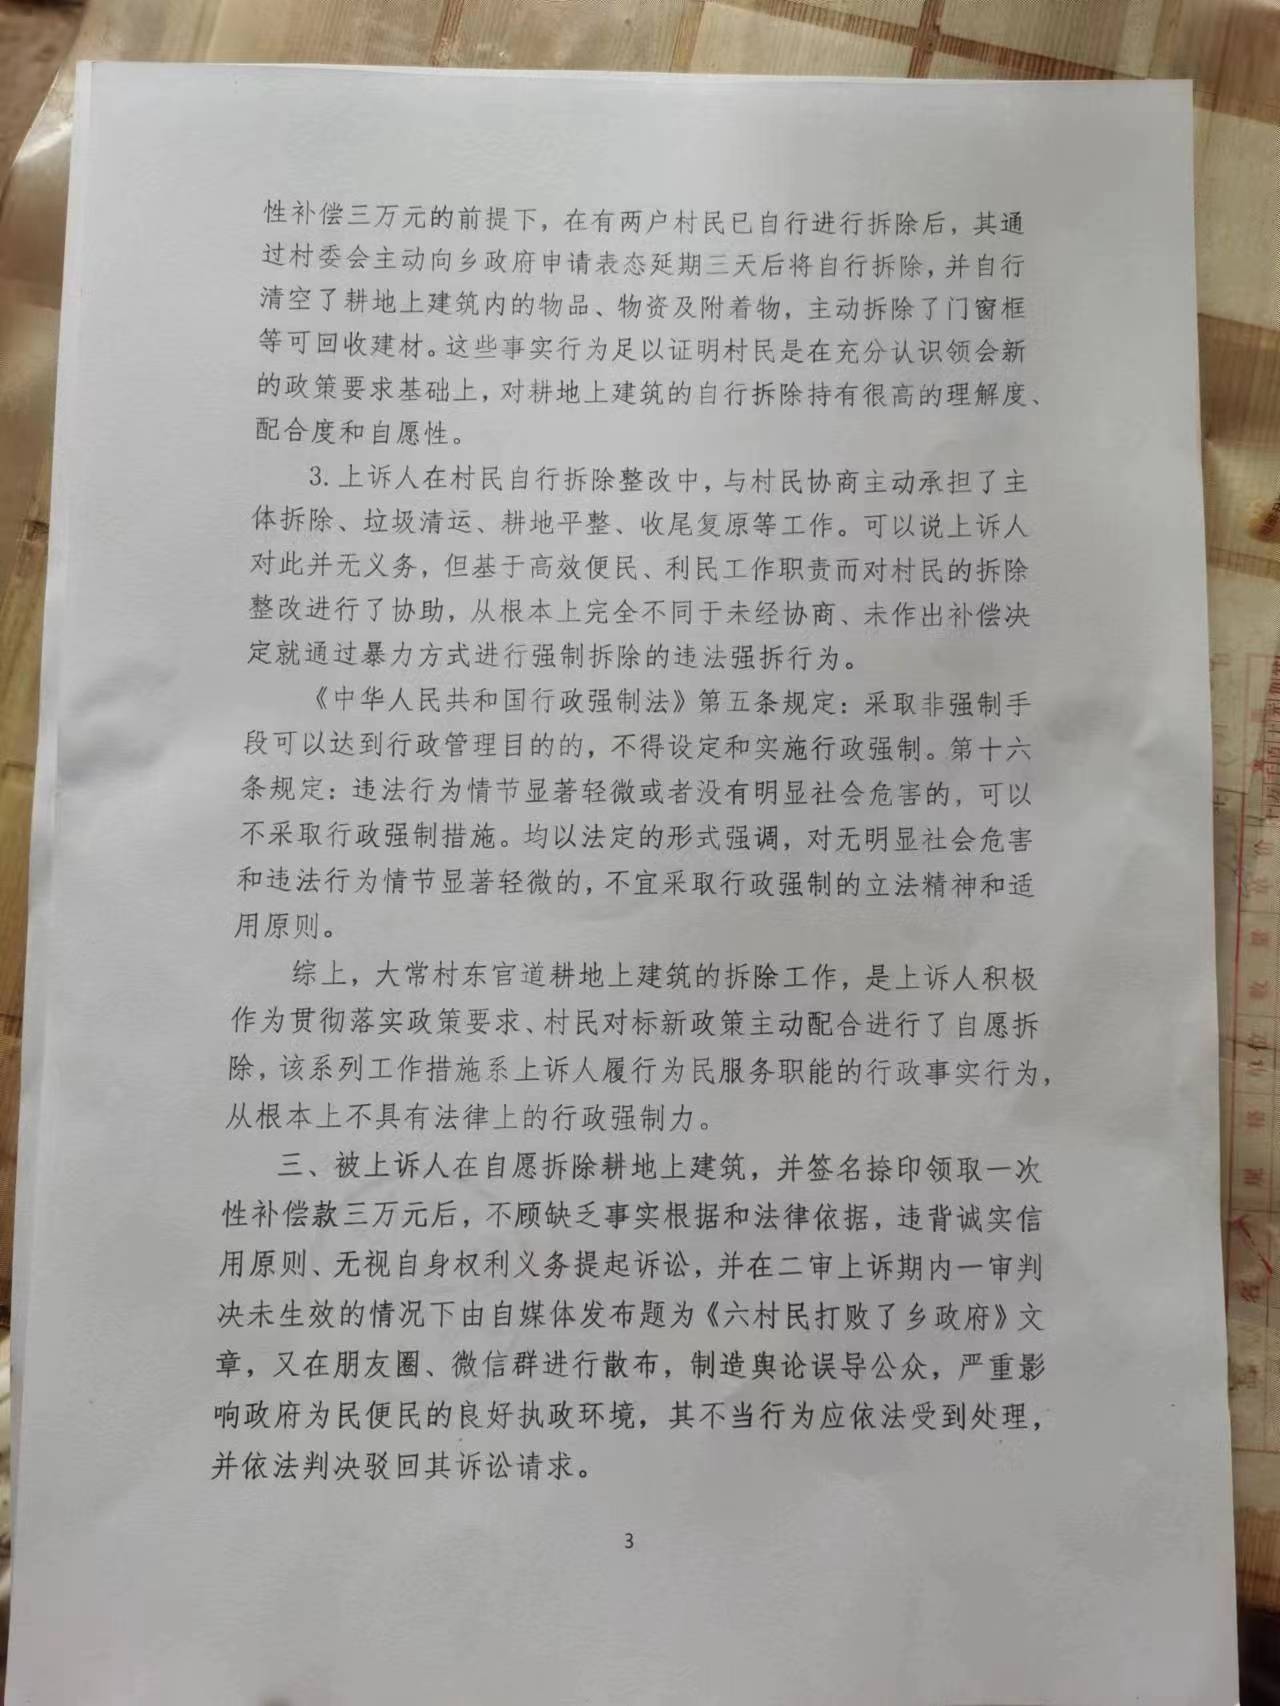 性补偿三万元的前提下，在有两户村民已自行进行拆除后，其通
过村委会主动向乡政府申请表态延期三天后将自行拆除，并自行
清空了耕地上建筑内的物品、物资及附着物，主动拆除了门窗框
等可回收建材。这些事实行为足以证明村民是在充分认识领会新
的政策要求基础上，对耕地上建筑的自行拆除持有很高的理解度、
配合度和自愿性。
3.上诉人在村民自行拆除整改中，与村民协商主动承担了主
体拆除、垃圾清运、耕地平整、收尾复原等工作。可以说上诉人
对此并无义务，但基于高效便民、利民工作职责而对村民的拆除
整改进行了协助，从根本上完全不同于未经协商、未作出补偿决
定就通过暴力方式进行强制拆除的违法强拆行为。
《中华人民共和国行政强制法》第五条规定：采取非强制手
段可以达到行政管理目的的，不得设定和实施行政强制。第十六
条规定：违法行为情节显著轻微或者没有明显社会危害的，可以
不采取行政强制措施。均以法定的形式强调，对无明显社会危害
和违法行为情节显著轻微的，不宜采取行政强制的立法精神和适
用原则。
综上，大常村东官道耕地上建筑的拆除工作，是上诉人积极
作为贯彻落实政策要求、村民对标新政策主动配合进行了自愿拆
除，该系列工作措施系上诉人履行为民服务职能的行政事实行为，
从根本上不具有法律上的行政强制力。
三、被上诉人在自愿拆除耕地上建筑，并签名捺印领取一次
性补偿款三万元后，不顾缺乏事实根据和法律依据，违背诚实信
用原则、无视自身权利义务提起诉讼，并在二审上诉期内一审判
决未生效的情况下由自媒体发布题为《六村民打败了乡政府》文
章，又在朋友圈、微信群进行散布，制造舆论误导公众，严重影
响政府为民便民的良好执政环境，其不当行为应依法受到处理，
并依法判决驳回其诉讼请求。
3